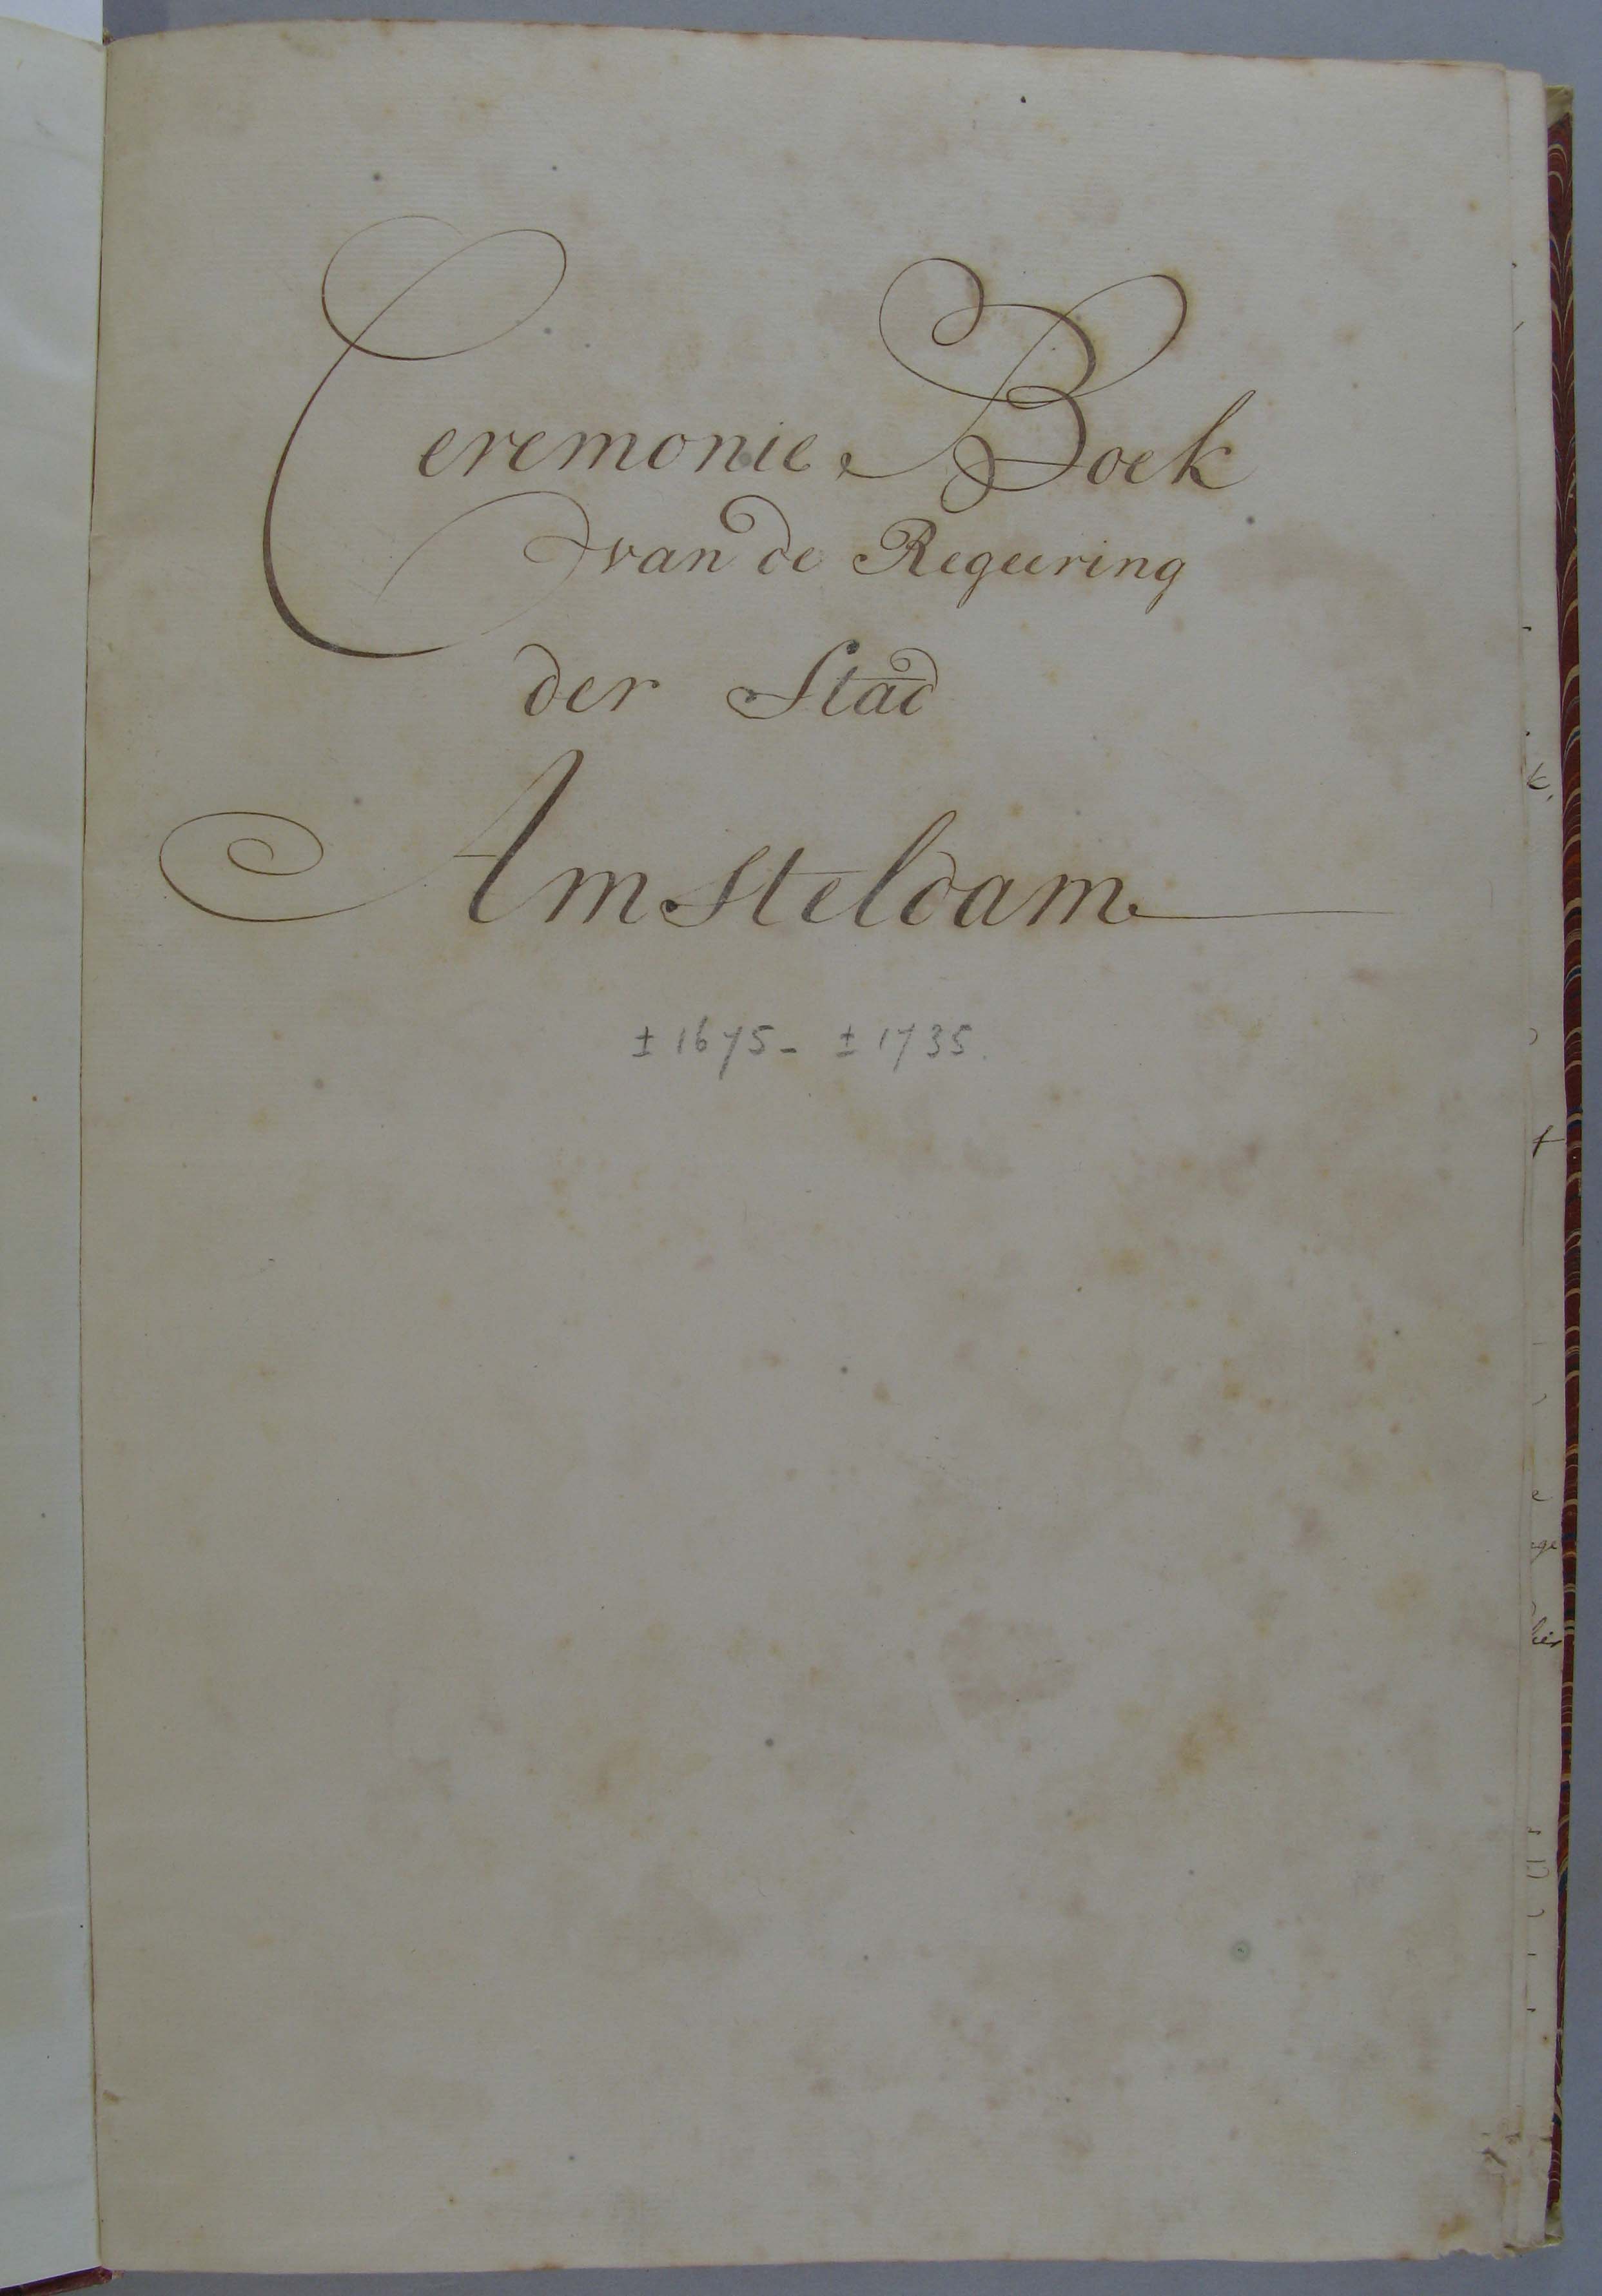 Ceremonie Boek
van de Regeering
der Stad
Amsteldam
± 1675 - ± 1735.